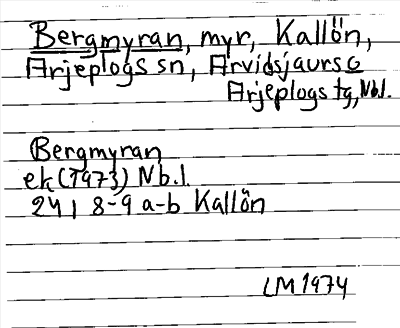 Bergmyran, myr, Kallön,
Arjeplogs sn, Arvidsjaurs o
Arjeplogs tg, Nb.l.
Bergmyran
ek (1973) Nb.l.
24 I 8-9 a-b Kallön
LM 1974